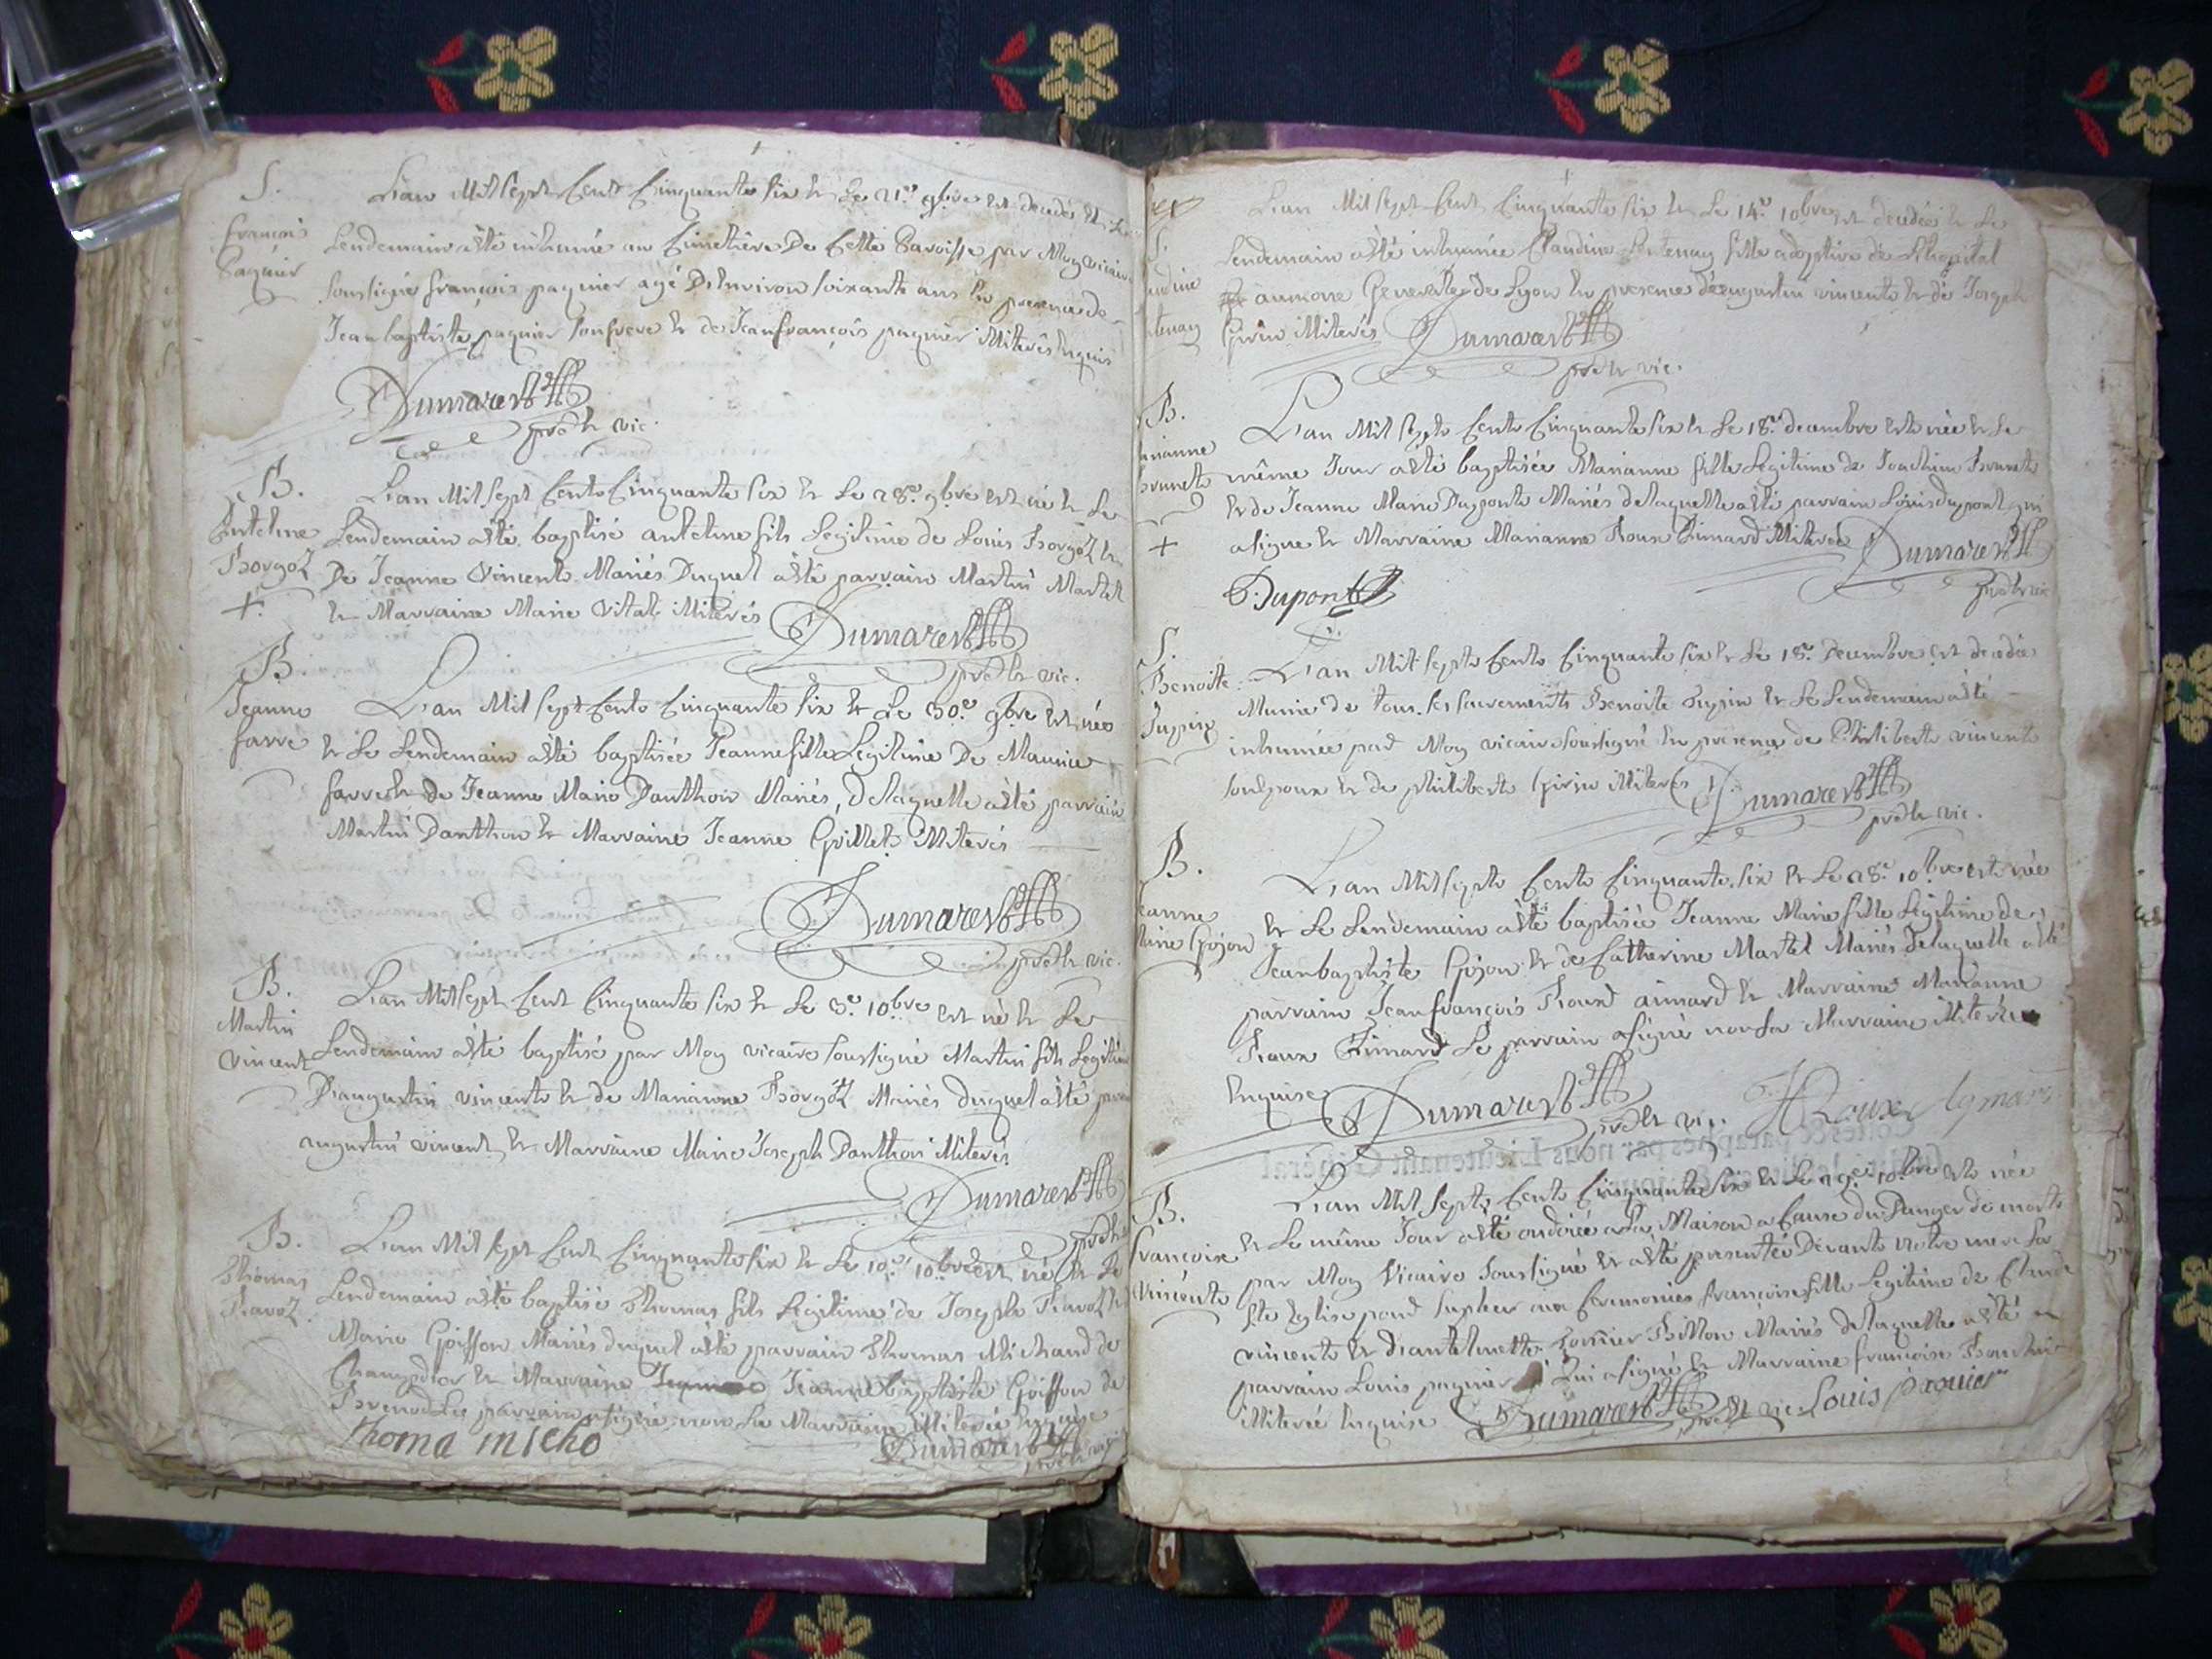 S.
françois
Paquier
L'an Mil sept Cent Cinquante six et Le 21.e 9bre est decedé et Le
Lendemain a été inhumé au Cimetière De Cette Paroisse par Moy vicaire
soussigné françois paquier agé D'Environ soixante ans En presence de
Jean baptiste paquier son frere et de Jean françois paquier illiterés Enquis
Dumarest
pretre vic.
B.
Antelme
Borgoz
+
L'an Mil sept Cent Cinquante six et Le 28.e 9bre est né et Le
Lendemain a été baptisé antelme fils Legitime de Louis Borgoz et
De Jeanne Vincent Mariés Duquel a été parrain Martin Martel
et Marraine Marie Vital illiterés
Dumarest
pretre vic.
B.
Jeanne
farre
L'an Mil sept Cent Cinquante six et Le 30.e 9bre est née
et Le Lendemain a été baptisée Jeanne fille Legitime De Maurice
farre et de Jeanne Marie Danthon Mariés, de laquelle a été parrain
Martin Danthon et Marraine Jeanne Grillet illiterés
Dumarest
pretre vic.
B.
Martin
Vincent
L'an Mil sept Cent Cinquante six et Le 3.e 10bre est né et Le
Lendemain a été baptisé par Moy vicaire soussigné Martin fils Legitime
D'augustin vincent et de Marianne Borgoz Mariés duquel a été
augustin vincent et Marraine Marie Joseph Danthon illiterés
Dumarest
B.
Thomas
Ravoz
L'an Mil sept Cent Cinquante six et Le 10.e 10bre est né et Le
Lendemain a été baptisé Thomas fils Legitime de Joseph Ravoz et
Marie Goiffon Mariés duquel a été parrain Thomas Michaud de
Champdor et Marraine Jeanne baptiste Goiffon de
Brenod Le parrain a signé non La Marraine illiterée Enquise
Thoma micho
Dumarest
L'an Mil sept Cent Cinquante six et Le 14.e 10bre est decedée et Le
Lendemain a été inhumée Claudine fille adoptive de L'hopital
aumone Generalle de Lyon En presence d'augustin vincent et de Joseph
Girin illiterés
Dumarest
pretre vic.
B.
Marianne
Brunet
+
L'an Mil sept Cent Cinquante six et Le 18.e decembre est née et Le
même Jour a été baptisée Marianne fille Legitime de Joachim Brunet
et de Jeanne Marie Dupont Mariés de laquelle a été parrain Louis dupont qui
a signé et Marraine Marianne Roux Aimard illiterée
Dumarest
pretre vic
Dupont
S.
Benoite
Jupin
L'an Mil sept Cent Cinquante six et Le 18.e Decembre est decedée
Munie de tous les sacrements Benoite Jupin et Le Lendemain a été
inhumée par Moy vicaire soussigné En presence de Philibert vincent
son Epoux et de philibert Girin illiterés
Dumarest
pretre vic.
B.
Jeanne
Marie Gojon
L'an Mil sept Cent Cinquante six et Le 28.e 10bre est née
et Le Lendemain a été baptisée Jeanne Marie fille Legitime de
Jean baptiste Gojon et de Catherine Martel Mariés De laquelle a été
parrain Jean françois Roux aimard et Marraine Marianne
Roux Aimard Le parrain a signé non La Marraine illiterée
Enquise
Dumarest
pretre vic.
Roux Aymard
Cottés et paraphés par nous Lieutenant Général
B.
francoise
Vincent
L'an Mil sept Cent Cinquante six et Le 29.e 10bre est née
et Le même Jour a été ondoiée a La Maison a Cause du Danger de mort
par Moy Vicaire soussigné et a été presentée Devant notre mere La
Ste Eglise pour supleer aux Ceremonies françoise fille Legitime de Claude
vincent et d'antelmette Billon Mariés de laquelle a été
parrain Louis paquier Qui a signé et Marraine françoise
illiterée Enquise
Dumarest
pretre vic.
Louis paquier